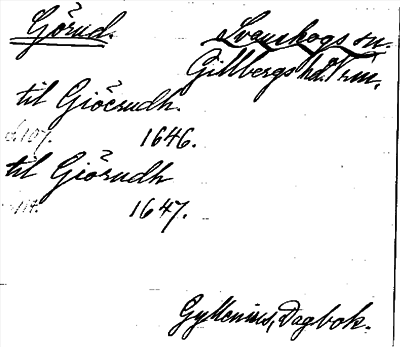 Görud.
Svanskogs sn.
Gillbergs hd. Vrm.
til Giöersudh.
s. 107. 1646.
til Giörudh
114. 1647.
Gyllenius, Dagbok.